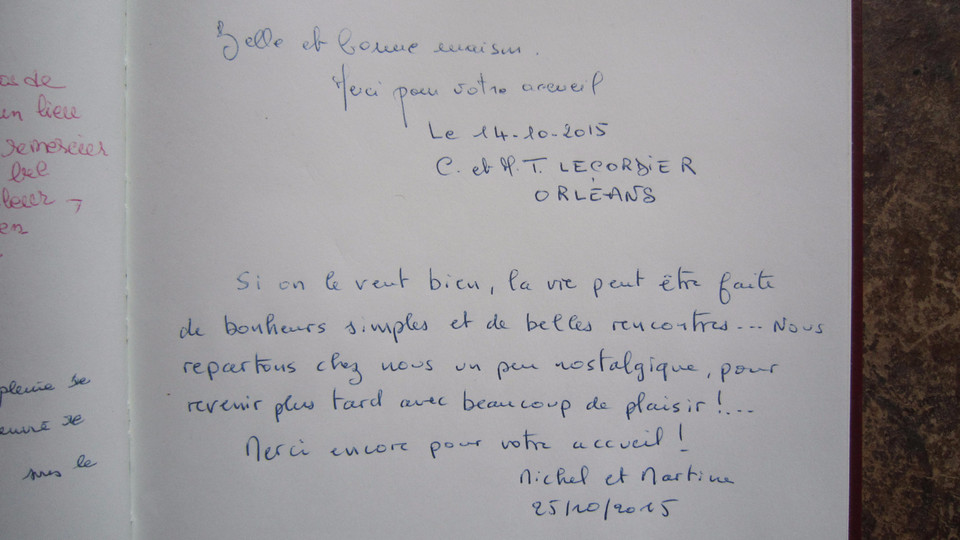 os de
un lieu
remercier
bel
leur
en
pleine de
de
mes le
Belle et bonne maison.
Merci pour votre accueil
Le 14-10-2015
C. et M.T. LECORDIER
ORLÉANS
Si on le veut bien, la vie peut être faite
de bonheurs simples et de belles rencontres... Nous
repartons chez nous un peu nostalgique, pour
revenir plus tard avec beaucoup de plaisir !...
Merci encore pour votre accueil !
Michel et Martine
25/10/2015